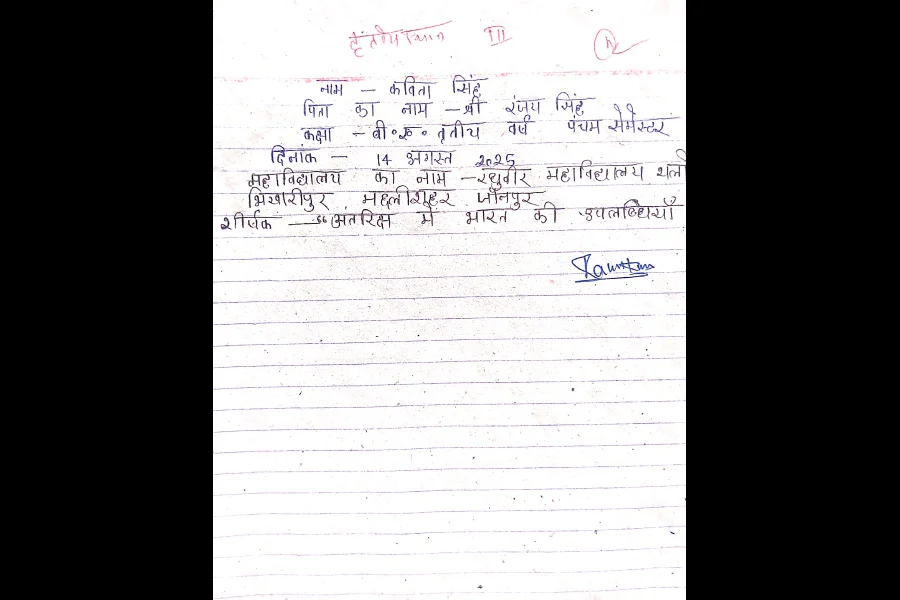 III
नाम - कविता सिंह
पिता का नाम - श्री रंजय सिंह
कक्षा - बी०ए० तृतीय वर्ष पंचम सेमेस्टर
दिनांक - 14 अगस्त 2025
महाविद्यालय का नाम - रघुवीर महाविद्यालय थलो
भिखारीपुर, मछलीशहर जौनपुर
शीर्षक - "अतरिक्ष में भारत की उपलब्धियाँ